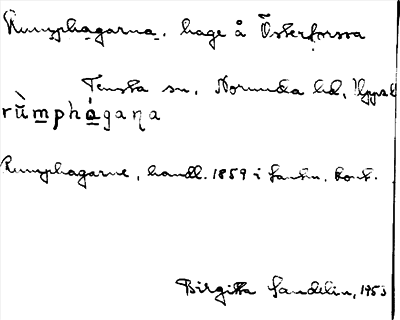 Rumphagarna, hage å Österforsa
Tensta sn, Norunda hd, Uppsala
rùmphágaņa
Rumphagarne, handl. 1859 i Lantm. kont.
Birgitta Sandelin, 1953